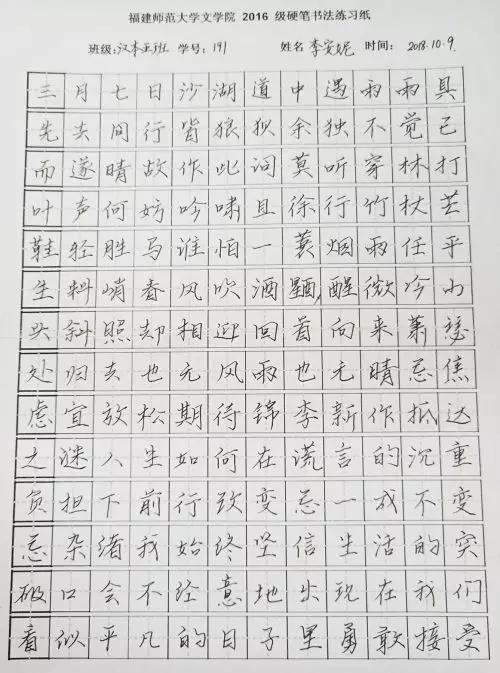 福建师范大学文学院 2016 级硬笔书法练习纸
班级:汉本五班 学号:191 姓名 李安妮 时间: 2018.10.9.
三月七日沙湖道中遇雨雨具
先去同行皆狼狈余独不觉已
而遂晴故作此词莫听穿林打
叶声何妨吟啸且徐行竹杖芒
鞋轻胜马谁怕一蓑烟雨任平
生料峭春风吹酒醒微冷山
头斜照却相迎回首向来萧瑟
处归去也无风雨也无晴忌焦
虑宜放松期待锦李新作抵达
之谜人生如何在谎言的沉重
负担下前行改变忌一成不变
忌杂绪我始终坚信生活的突
破口会不经意地出现在我们
看似平凡的日子里勇敢接受